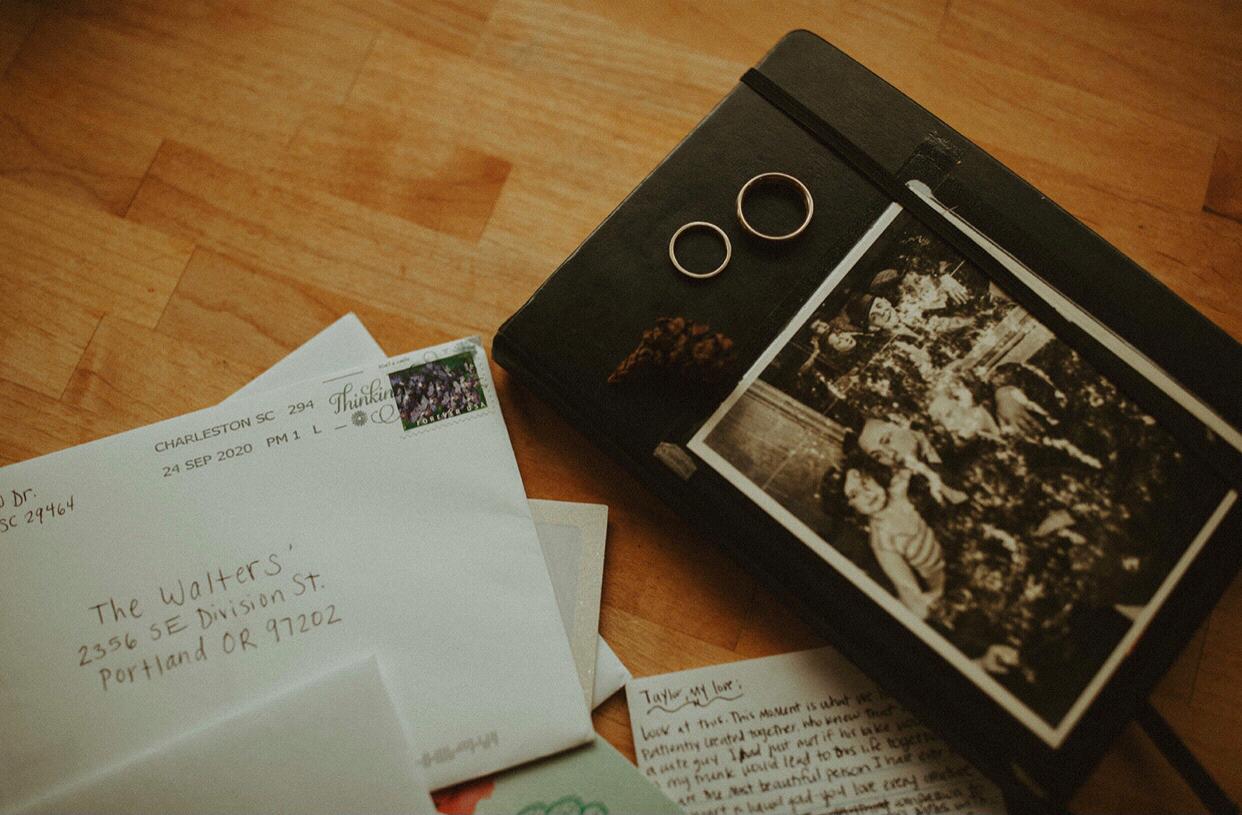 CHARLESTON SC 294
24 SEP 2020 PM 1 L
Thinkin
FOREVER USA
Dr.
SC 29464
The Walters'
2356 SE Division St.
Portland OR 97202
Taylor, my love:
Look at this. This moment is what we
patiently created together. who knew that
a cute guy I had just met if his bike would
my trunk would lead to this life together
are the most beautiful person I have ever
you love every